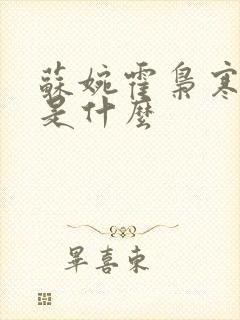 蘇婉霍梟寒
是什麼
畢喜東